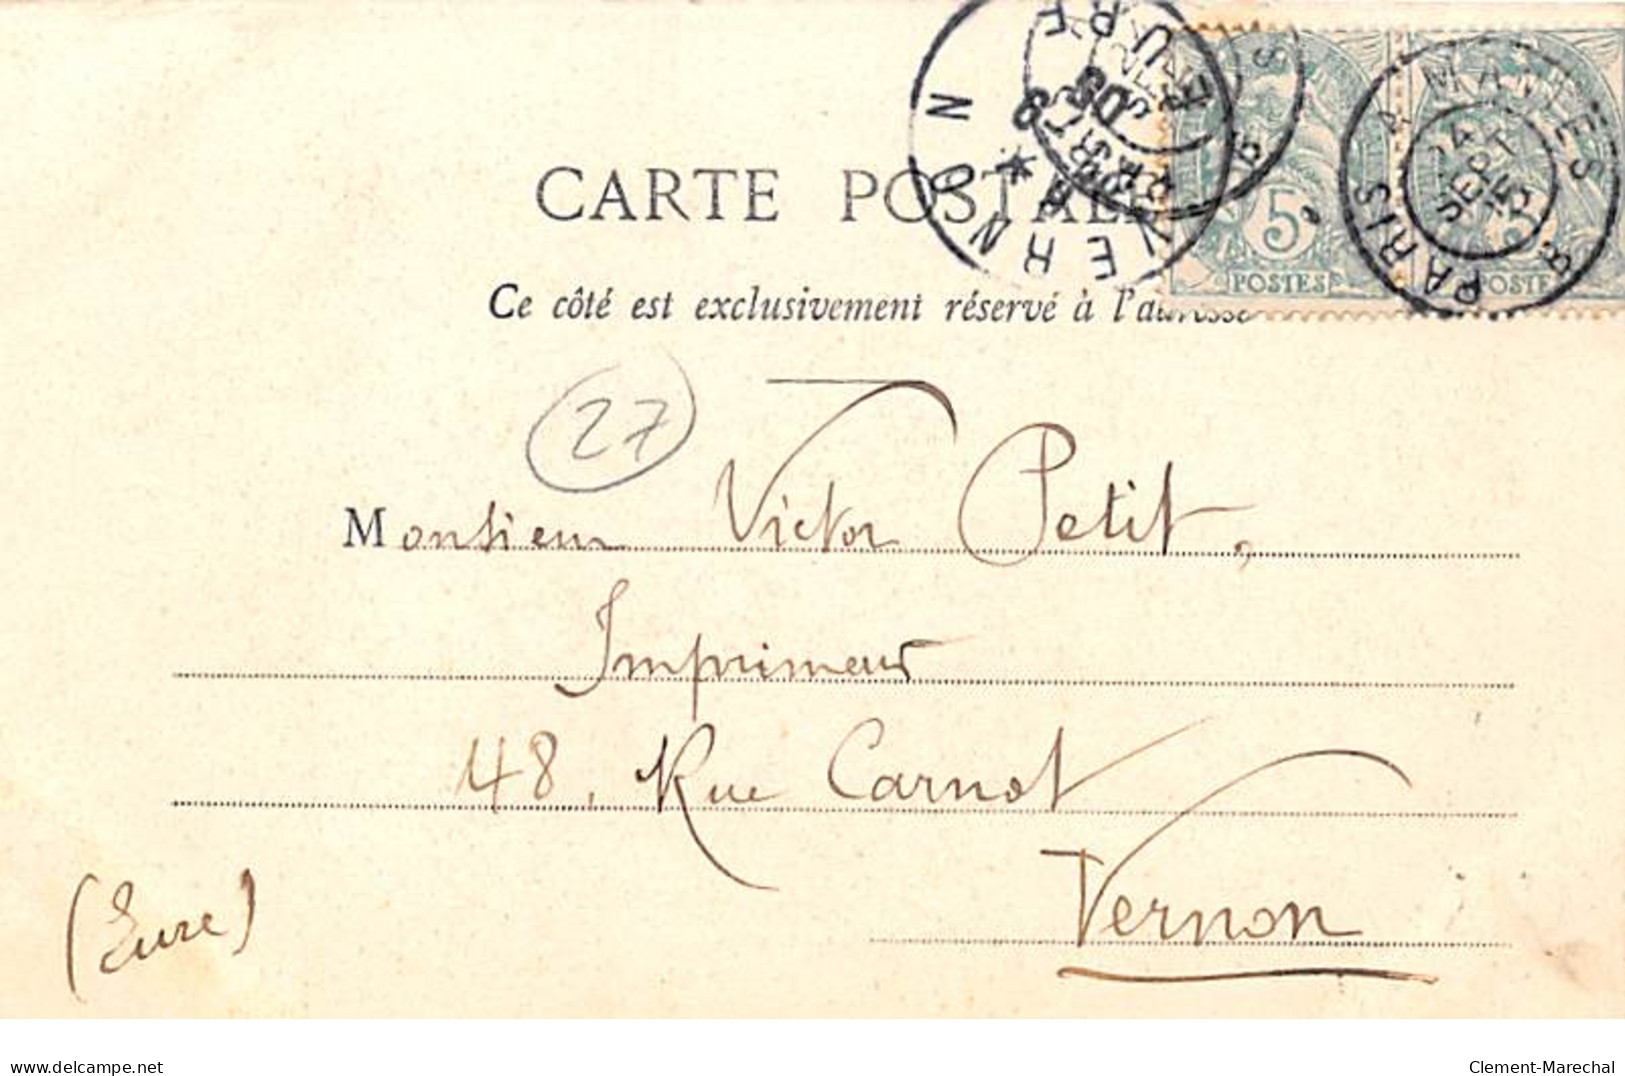 CARTE POSTALE
Ce côté est exclusivement réservé à l'adresse
VERNON
EURE
PARIS A MANTES
24
SEPT
05
5
POSTES
POSTES
27
Monsieur Victor Petit,
Imprimeur
48, Rue Carnot
Vernon
(Eure)
www.delcampe.net
Clement-Marechal